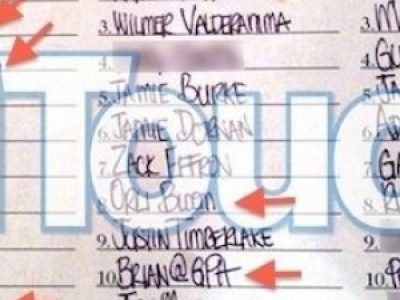 3. WILMER VALDERAMMA
4.
5. JAMIE BURKE
6. JAMIE DORNAN
7. ZACK EFFRON
8. ORLI BLOOM
9. JUSTIN TIMBERLAKE
10. BRIAN@GPA
3.
4. GU
5. JA
6.
7. GA
8.
9.
10.
Touc